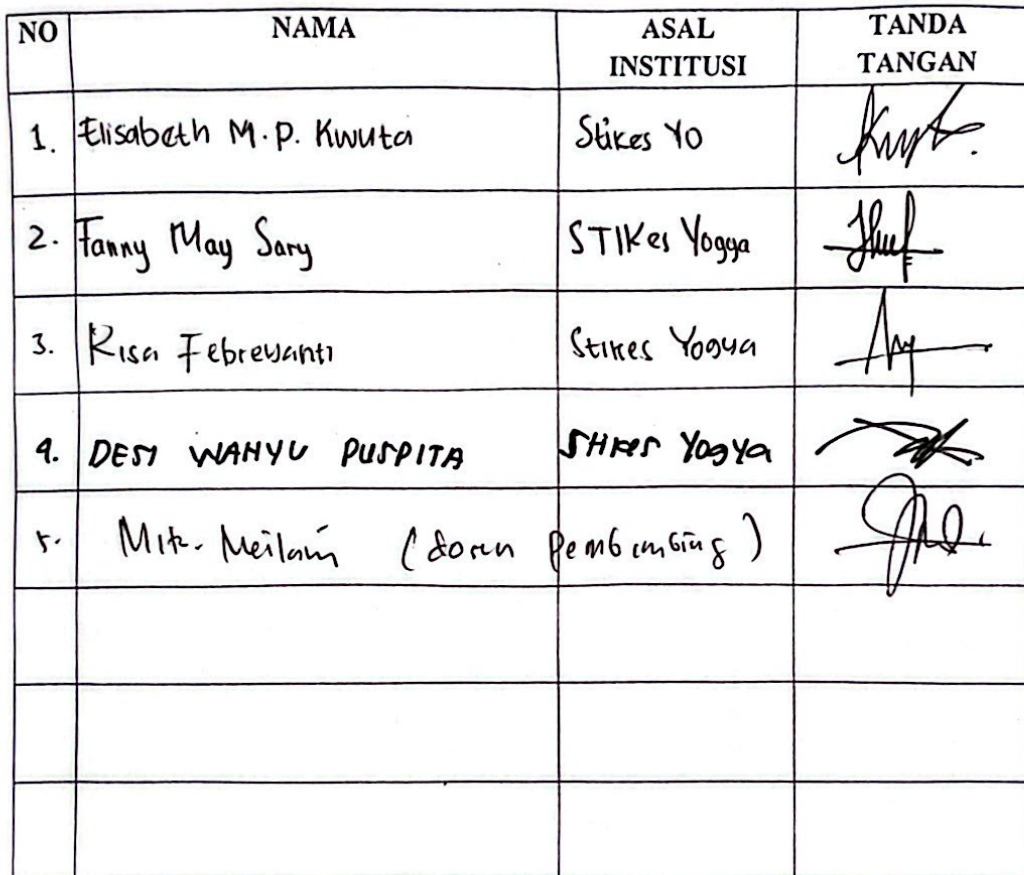 NO NAMA ASAL INSTITUSI TANDA TANGAN
1. Elisabeth M.P. Kwuta Stikes Yo
2. Fanny May Sary STIKes Yogya
3. Risa Febreyanti Stikes Yogya
4. DESI WAHYU PUSPITA STIKES YogYa
5. Meilani (dosen Pembimbing)